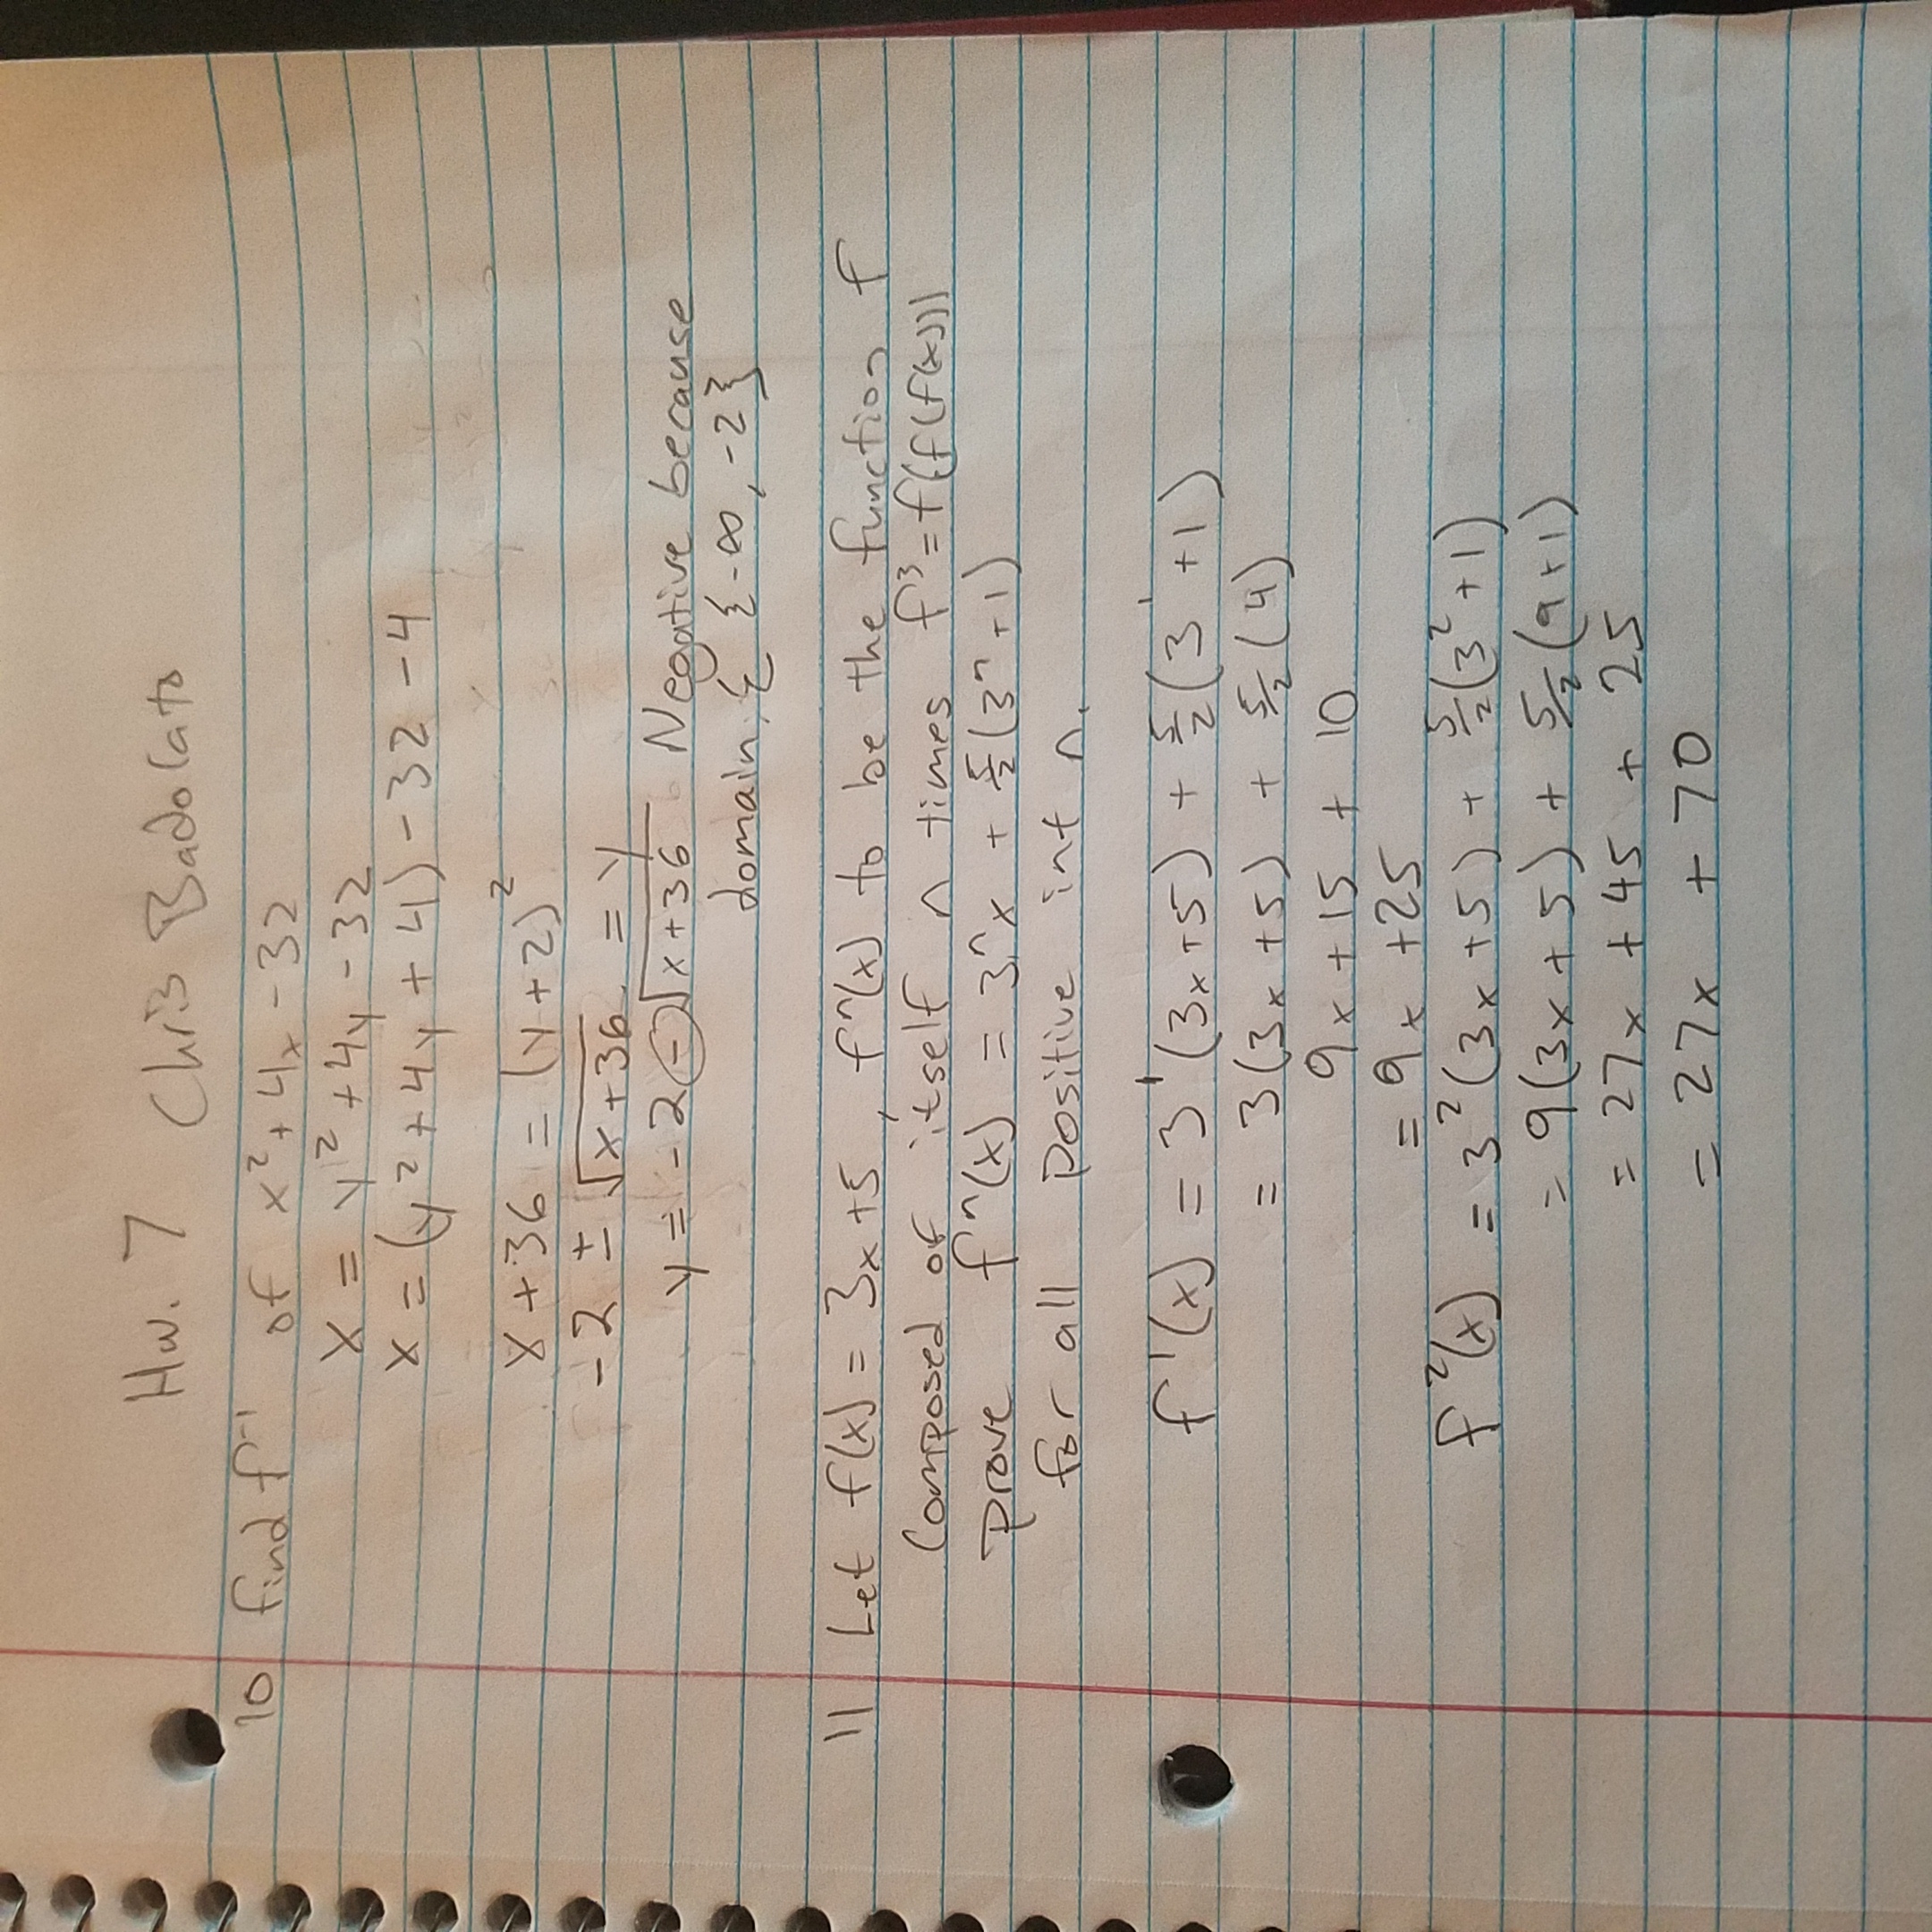 Hw. 7 Chris Badolato
10 find f⁻¹ of x² + 4x - 32
x = y² + 4y - 32
x = (y² + 4y + 4) - 32 - 4
x + 36 = (y + 2)²
-2 ± √(x+36) = y
y = -2 - √(x+36) Negative because
domain, { {-∞, -2}
11 Let f(x) = 3x + 5, fⁿ(x) to be the function f
Composed of itself n times f³ = f(f(f(x)))
prove fⁿ(x) = 3ⁿx + 5/2(3ⁿ + 1)
for all positive int n.
f¹(x) = 3¹(3x + 5) + 5/2(3¹ + 1)
= 3(3x + 5) + 5/2(4)
9x + 15 + 10
= 9x + 25
f²(x) = 3²(3x + 5) + 5/2(3² + 1)
= 9(3x + 5) + 5/2(9 + 1)
= 27x + 45 + 25
= 27x + 70